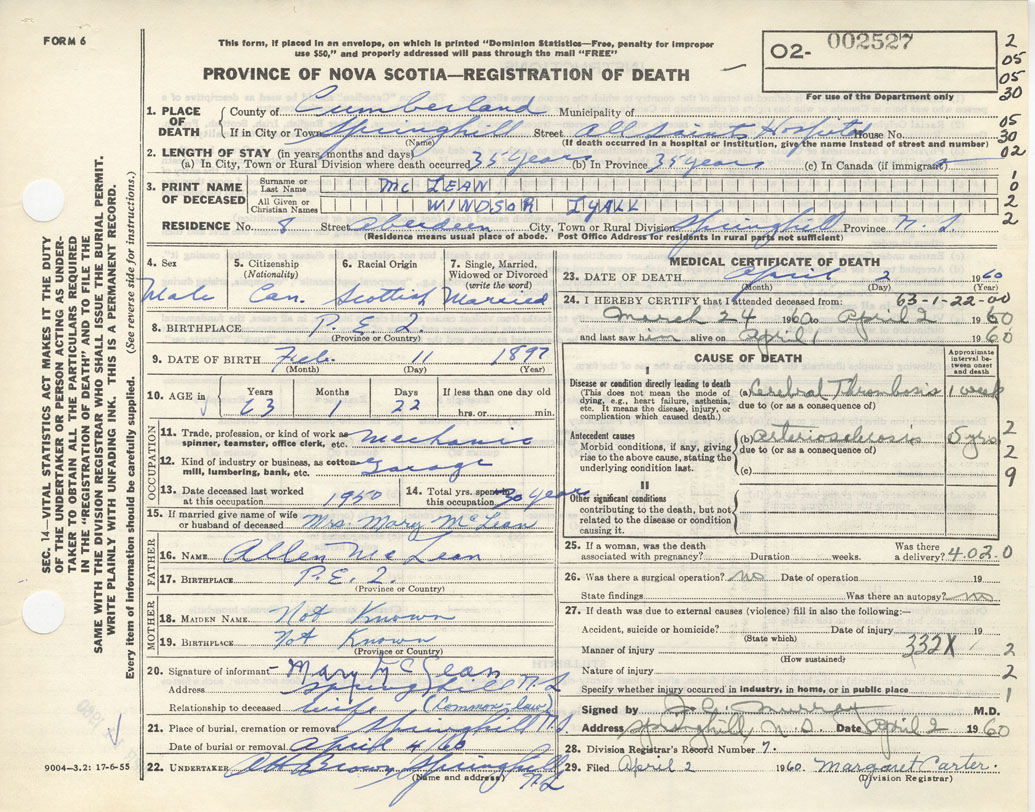 FORM 6
This form, if placed in an envelope, on which is printed "Dominion Statistics—Free, penalty for improper
use $50," and properly addressed will pass through the mail "FREE"
PROVINCE OF NOVA SCOTIA—REGISTRATION OF DEATH
02- 002527
For use of the Department only
2
05
05
30
05
30
02
1. PLACE OF DEATH County of Cumberland Municipality of
If in City or Town Springhill Street All Saints Hospital House No.
(Name) (If death occurred in a hospital or institution, give the name instead of street and number)
2. LENGTH OF STAY (in years, months and days)
(a) In City, Town or Rural Division where death occurred 35 years (b) In Province 35 years (c) In Canada (if immigrant)
3. PRINT NAME OF DECEASED Surname or Last Name Mc LEAN
All Given or Christian Names WINDSOR LYALL
1
0
2
2
RESIDENCE No. 8 Street Aberdeen City, Town or Rural Division Springhill Province N. S.
(Residence means usual place of abode. Post Office Address for residents in rural parts not sufficient)
4. Sex
Male
5. Citizenship
(Nationality)
Can.
6. Racial Origin
Scottish
7. Single, Married,
Widowed or Divorced
(write the word)
Married
8. BIRTHPLACE P. E. I.
(Province or Country)
9. DATE OF BIRTH Feb. 11 1897
(Month) (Day) (Year)
10. AGE in Years Months Days If less than one day old
63 1 22 hrs. or min.
OCCUPATION
11. Trade, profession, or kind of work as
spinner, teamster, office clerk, etc. Mechanic
12. Kind of industry or business, as cotton
mill, lumbering, bank, etc. Garage
13. Date deceased last worked
at this occupation 1950
14. Total yrs. spent in
this occupation 30 years
15. If married give name of wife
or husband of deceased Mrs. Mary McLean
FATHER
16. NAME Allen McLean
17. BIRTHPLACE P. E. I.
(Province or Country)
MOTHER
18. MAIDEN NAME Not Known
19. BIRTHPLACE Not Known
(Province or Country)
20. Signature of informant Mary McLean
Address Springhill N. S.
Relationship to deceased wife (Common-law)
21. Place of burial, cremation or removal Springhill N. S.
Date of burial or removal April 4/60
22. UNDERTAKER Brown, Springhill
(Name and address) N. S.
MEDICAL CERTIFICATE OF DEATH
23. DATE OF DEATH April 2 1960
(Month) (Day) (Year)
24. I HEREBY CERTIFY that I attended deceased from: 63-1-22-00
March 24 1960 to April 2 1960
and last saw him alive on April 1 1960
CAUSE OF DEATH
Approximate
interval between onset
and death
I
Disease or condition directly leading to death
(This does not mean the mode of
dying, e.g., heart failure, asthenia,
etc. It means the disease, injury, or
complication which caused death.)
(a) Cerebral Thrombosis 1 week
due to (or as a consequence of)
Antecedent causes
Morbid conditions, if any, giving
rise to the above cause, stating the
underlying condition last.
(b) Arteriosclerosis 5 yrs
due to (or as a consequence of)
(c)
2
2
9
II
Other significant conditions
contributing to the death, but not
related to the disease or condition
causing it.
25. If a woman, was the death
associated with pregnancy? Duration weeks. Was there
a delivery? 4.02.0
26. Was there a surgical operation? no Date of operation 19
State findings Was there an autopsy? no
27. If death was due to external causes (violence) fill in also the following:—
Accident, suicide or homicide? Date of injury 19
(State which)
Manner of injury 332X 2
(How sustained)
Nature of injury 2
Specify whether injury occurred in industry, in home, or in public place 1
Signed by Murray M.D.
Address Springhill, N. S. Date April 2 1960
28. Division Registrar's Record Number 7.
29. Filed April 2 1960. Margaret Carter.
(Division Registrar)
SEC. 14—VITAL STATISTICS ACT MAKES IT THE DUTY
OF THE UNDERTAKER OR PERSON ACTING AS UNDERTAKER
TO OBTAIN ALL THE PARTICULARS REQUIRED
IN THE "REGISTRATION OF DEATH" AND TO FILE THE
SAME WITH THE DIVISION REGISTRAR WHO SHALL ISSUE THE BURIAL PERMIT.
WRITE PLAINLY WITH UNFADING INK. THIS IS A PERMANENT RECORD.
Every item of information should be carefully supplied. (See reverse side for instructions.)
9004—3.2: 17-6-55